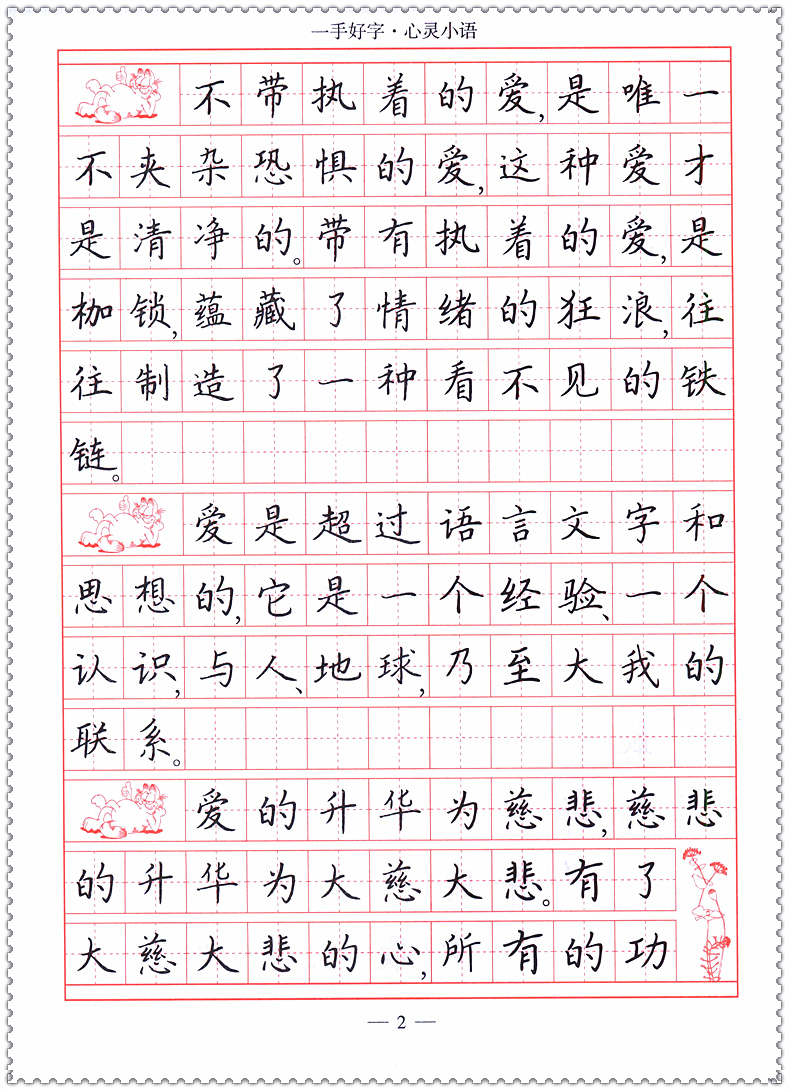 一手好字·心灵小语
不带执着的爱,是唯一
不夹杂恐惧的爱,这种爱才
是清净的。带有执着的爱,是
枷锁,蕴藏了情绪的狂浪,往
往制造了一种看不见的铁
链。
爱是超过语言文字和
思想的,它是一个经验、一个
认识,与人、地球,乃至大我的
联系。
爱的升华为慈悲,慈悲
的升华为大慈大悲。有了
大慈大悲的心,所有的功
— 2 —